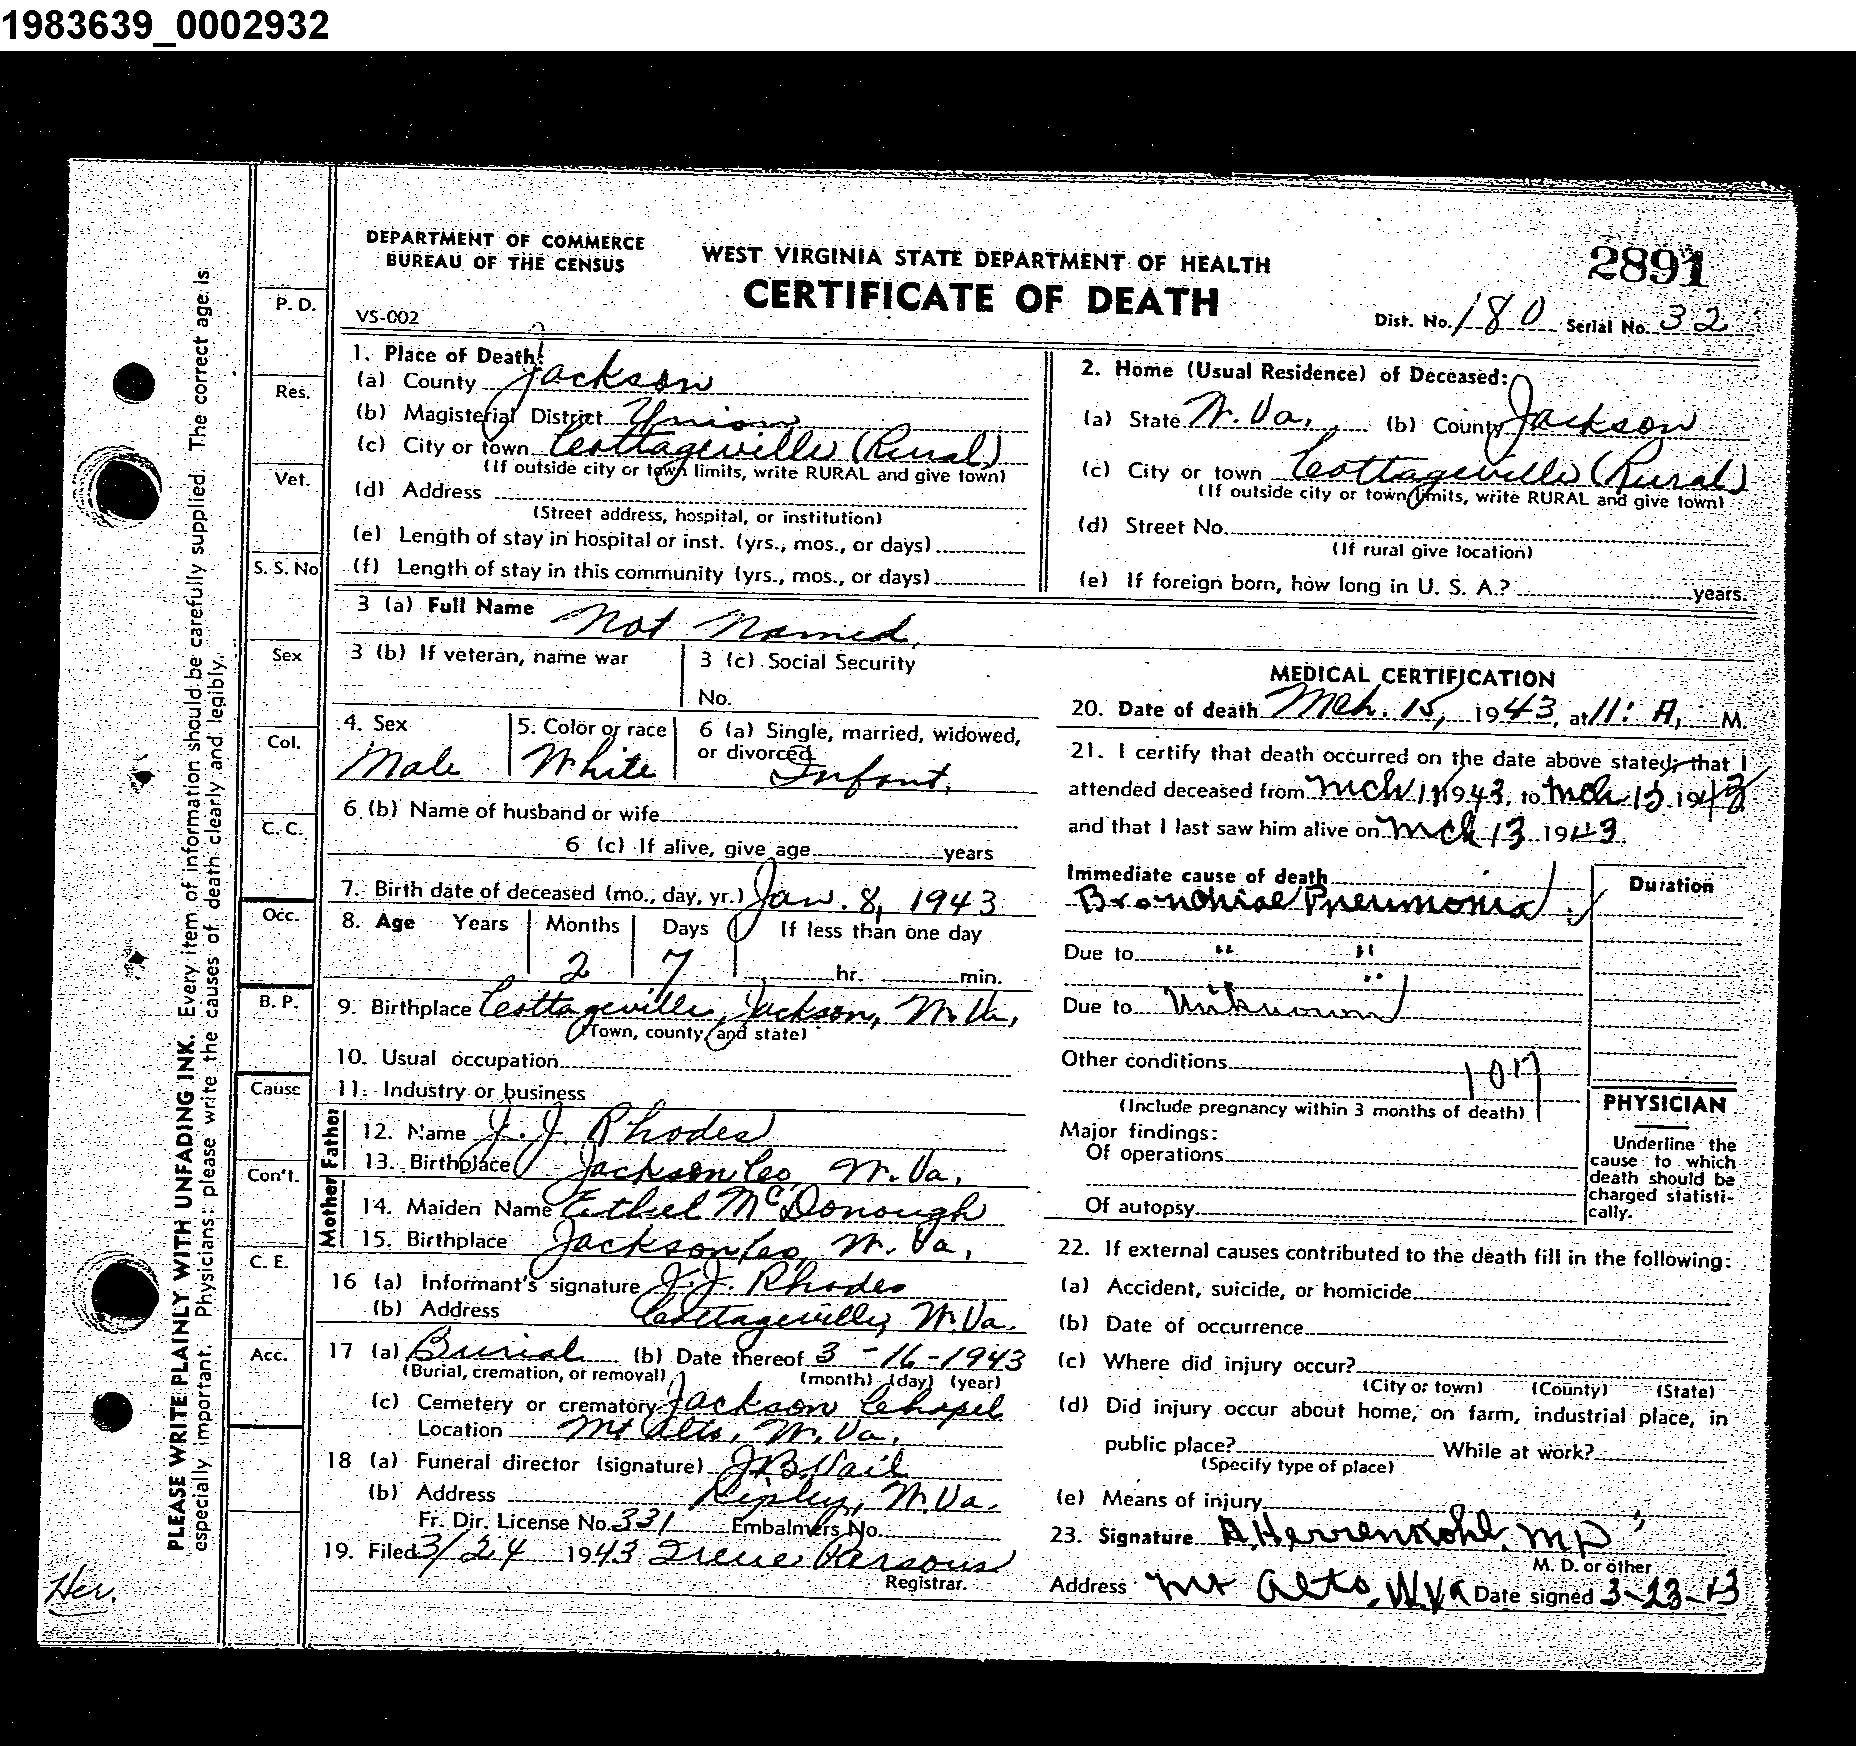 1983639_0002932
DEPARTMENT OF COMMERCE
BUREAU OF THE CENSUS
WEST VIRGINIA STATE DEPARTMENT OF HEALTH
CERTIFICATE OF DEATH
2891
VS-002
Dist. No. 180 Serial No. 32
PLEASE WRITE PLAINLY WITH UNFADING INK. Every item of information should be carefully supplied. The correct age is
especially important. Physicians: please write the causes of death clearly and legibly.
Her.
P. D.
Res.
Vet.
S. S. No
Sex
Col.
C. C.
Occ.
B. P.
Cause
Con't.
C. E.
Acc.
1. Place of Death:
(a) County Jackson
(b) Magisterial District Union
(c) City or town Cottageville (Rural)
(If outside city or town limits, write RURAL and give town)
(d) Address
(Street address, hospital, or institution)
(e) Length of stay in hospital or inst. (yrs., mos., or days)
(f) Length of stay in this community (yrs., mos., or days)
2. Home (Usual Residence) of Deceased:
(a) State W. Va. (b) County Jackson
(c) City or town Cottageville (Rural)
(If outside city or town limits, write RURAL and give town)
(d) Street No.
(If rural give location)
(e) If foreign born, how long in U. S. A.? years.
3 (a) Full Name Not Named.
3 (b) If veteran, name war
3 (c) Social Security
No.
4. Sex
Male
5. Color or race
White
6 (a) Single, married, widowed,
or divorced
Infant.
6 (b) Name of husband or wife
6 (c) If alive, give age years
7. Birth date of deceased (mo., day, yr.) Jan. 8, 1943
8. Age Years Months Days If less than one day
2 7 hr. min.
9. Birthplace Cottageville, Jackson, W. Va.
(Town, county and state)
10. Usual occupation
11. Industry or business
Father
12. Name J. J. Rhodes
13. Birthplace Jackson Co, W. Va.
Mother
14. Maiden Name Ethel McDonough
15. Birthplace Jackson Co, W. Va.
16 (a) Informant's signature J. J. Rhodes
(b) Address Cottageville, W. Va.
17 (a) Burial (b) Date thereof 3-16-1943
(Burial, cremation, or removal) (month) (day) (year)
(c) Cemetery or crematory Jackson Chapel
Location Mt Alto, W. Va.
18 (a) Funeral director (signature) J B Vail
(b) Address Ripley, W. Va.
Fr. Dir. License No. 331 Embalmers No.
19. Filed 3/24 1943 Irene Parsons
Registrar.
MEDICAL CERTIFICATION
20. Date of death Mch. 15, 1943, at 11: A, M.
21. I certify that death occurred on the date above stated; that I
attended deceased from Mch 11 1943, to Mch 15 1943
and that I last saw him alive on Mch 13 1943.
Immediate cause of death
Bronchial Pneumonia
Duration
Due to " "
Due to Unknown
Other conditions
107
(Include pregnancy within 3 months of death)
Major findings:
Of operations
Of autopsy
PHYSICIAN
Underline the
cause to which
death should be
charged statisti-
cally.
22. If external causes contributed to the death fill in the following:
(a) Accident, suicide, or homicide
(b) Date of occurrence
(c) Where did injury occur?
(City or town) (County) (State)
(d) Did injury occur about home, on farm, industrial place, in
public place? While at work?
(Specify type of place)
(e) Means of injury
23. Signature A. Herrenkohl, MD
M. D. or other
Address Mt Alto, W. Va Date signed 3-23-43